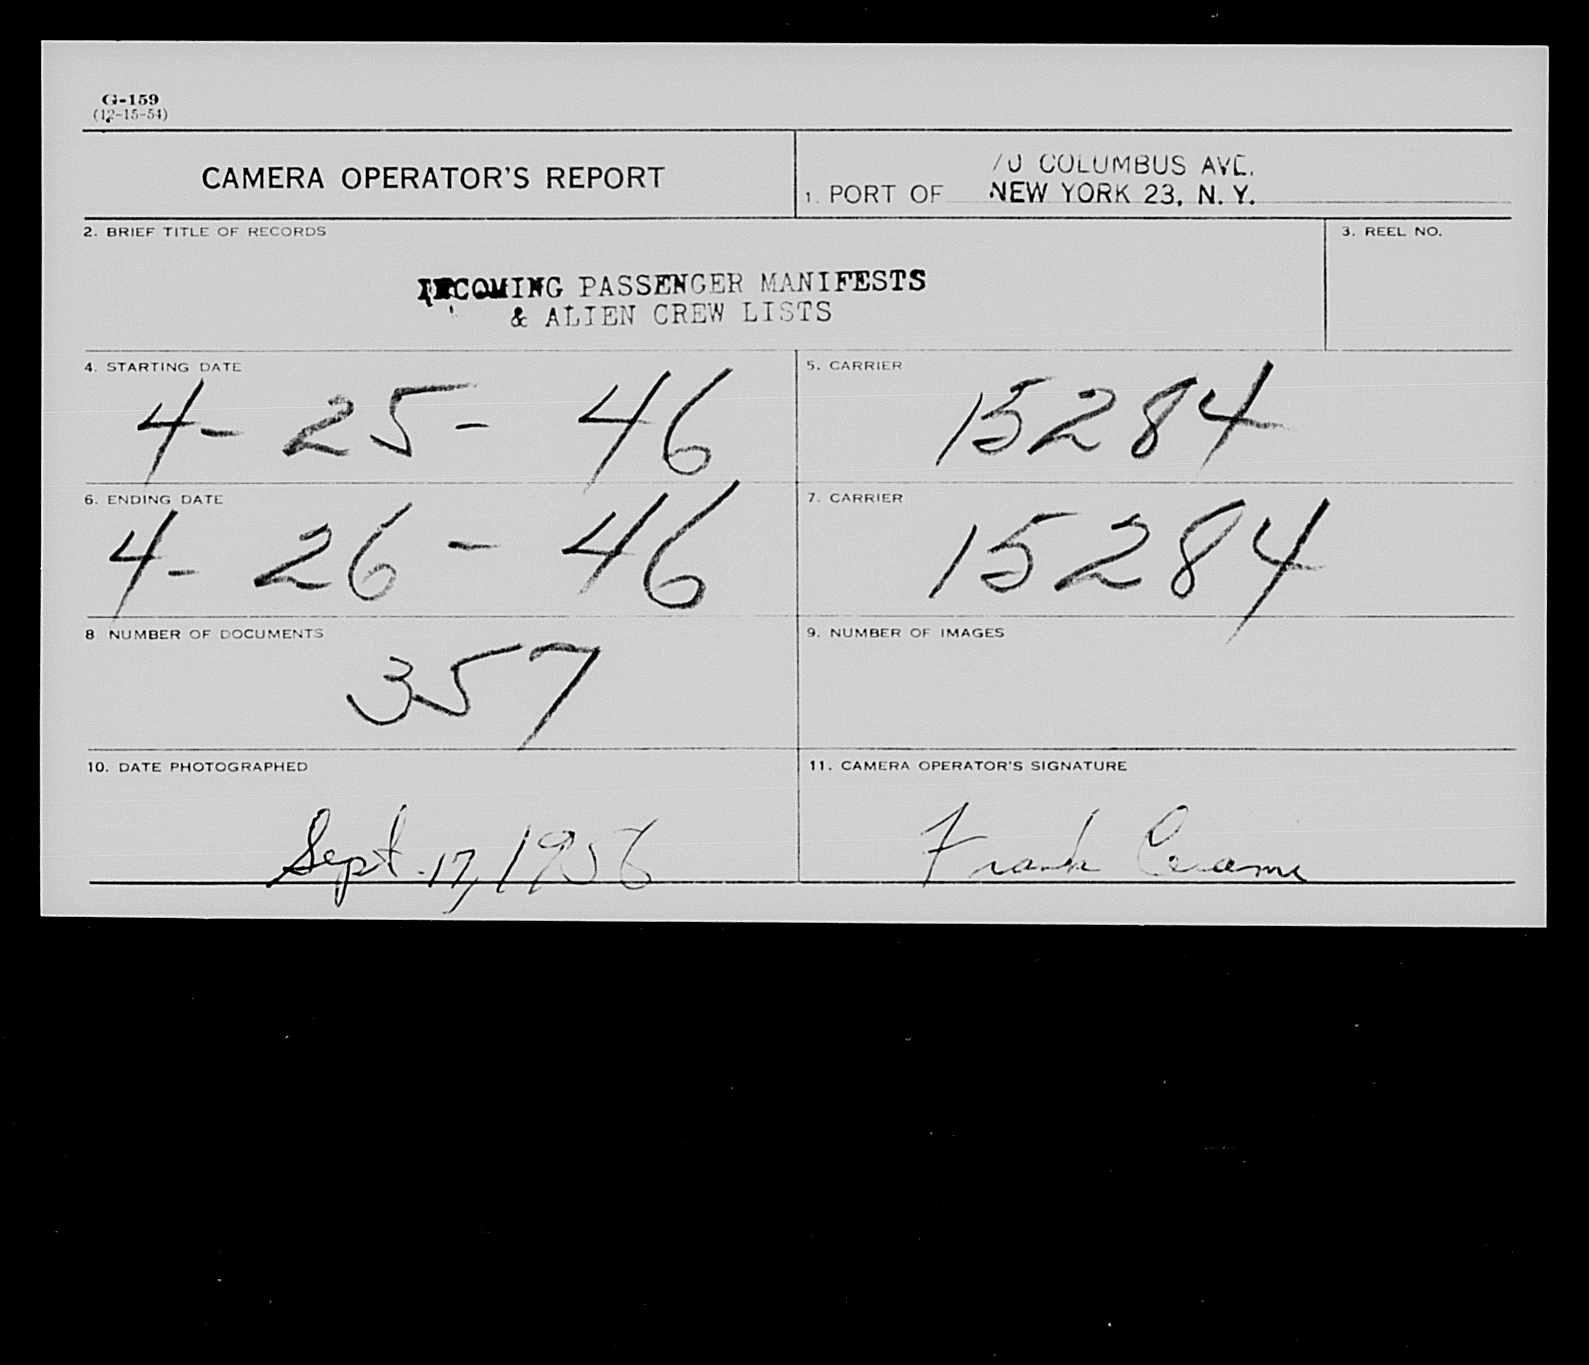 G-159
(12-15-54)
CAMERA OPERATOR'S REPORT
70 COLUMBUS AVE.
1. PORT OF NEW YORK 23, N. Y.
2. BRIEF TITLE OF RECORDS
3. REEL NO.
INCOMING PASSENGER MANIFESTS
& ALIEN CREW LISTS
4. STARTING DATE
4- 25- 46
5. CARRIER
15284
6. ENDING DATE
4- 26 - 46
7. CARRIER
15284
8 NUMBER OF DOCUMENTS
357
9. NUMBER OF IMAGES
10. DATE PHOTOGRAPHED
Sept. 17, 1956
11. CAMERA OPERATOR'S SIGNATURE
Frank